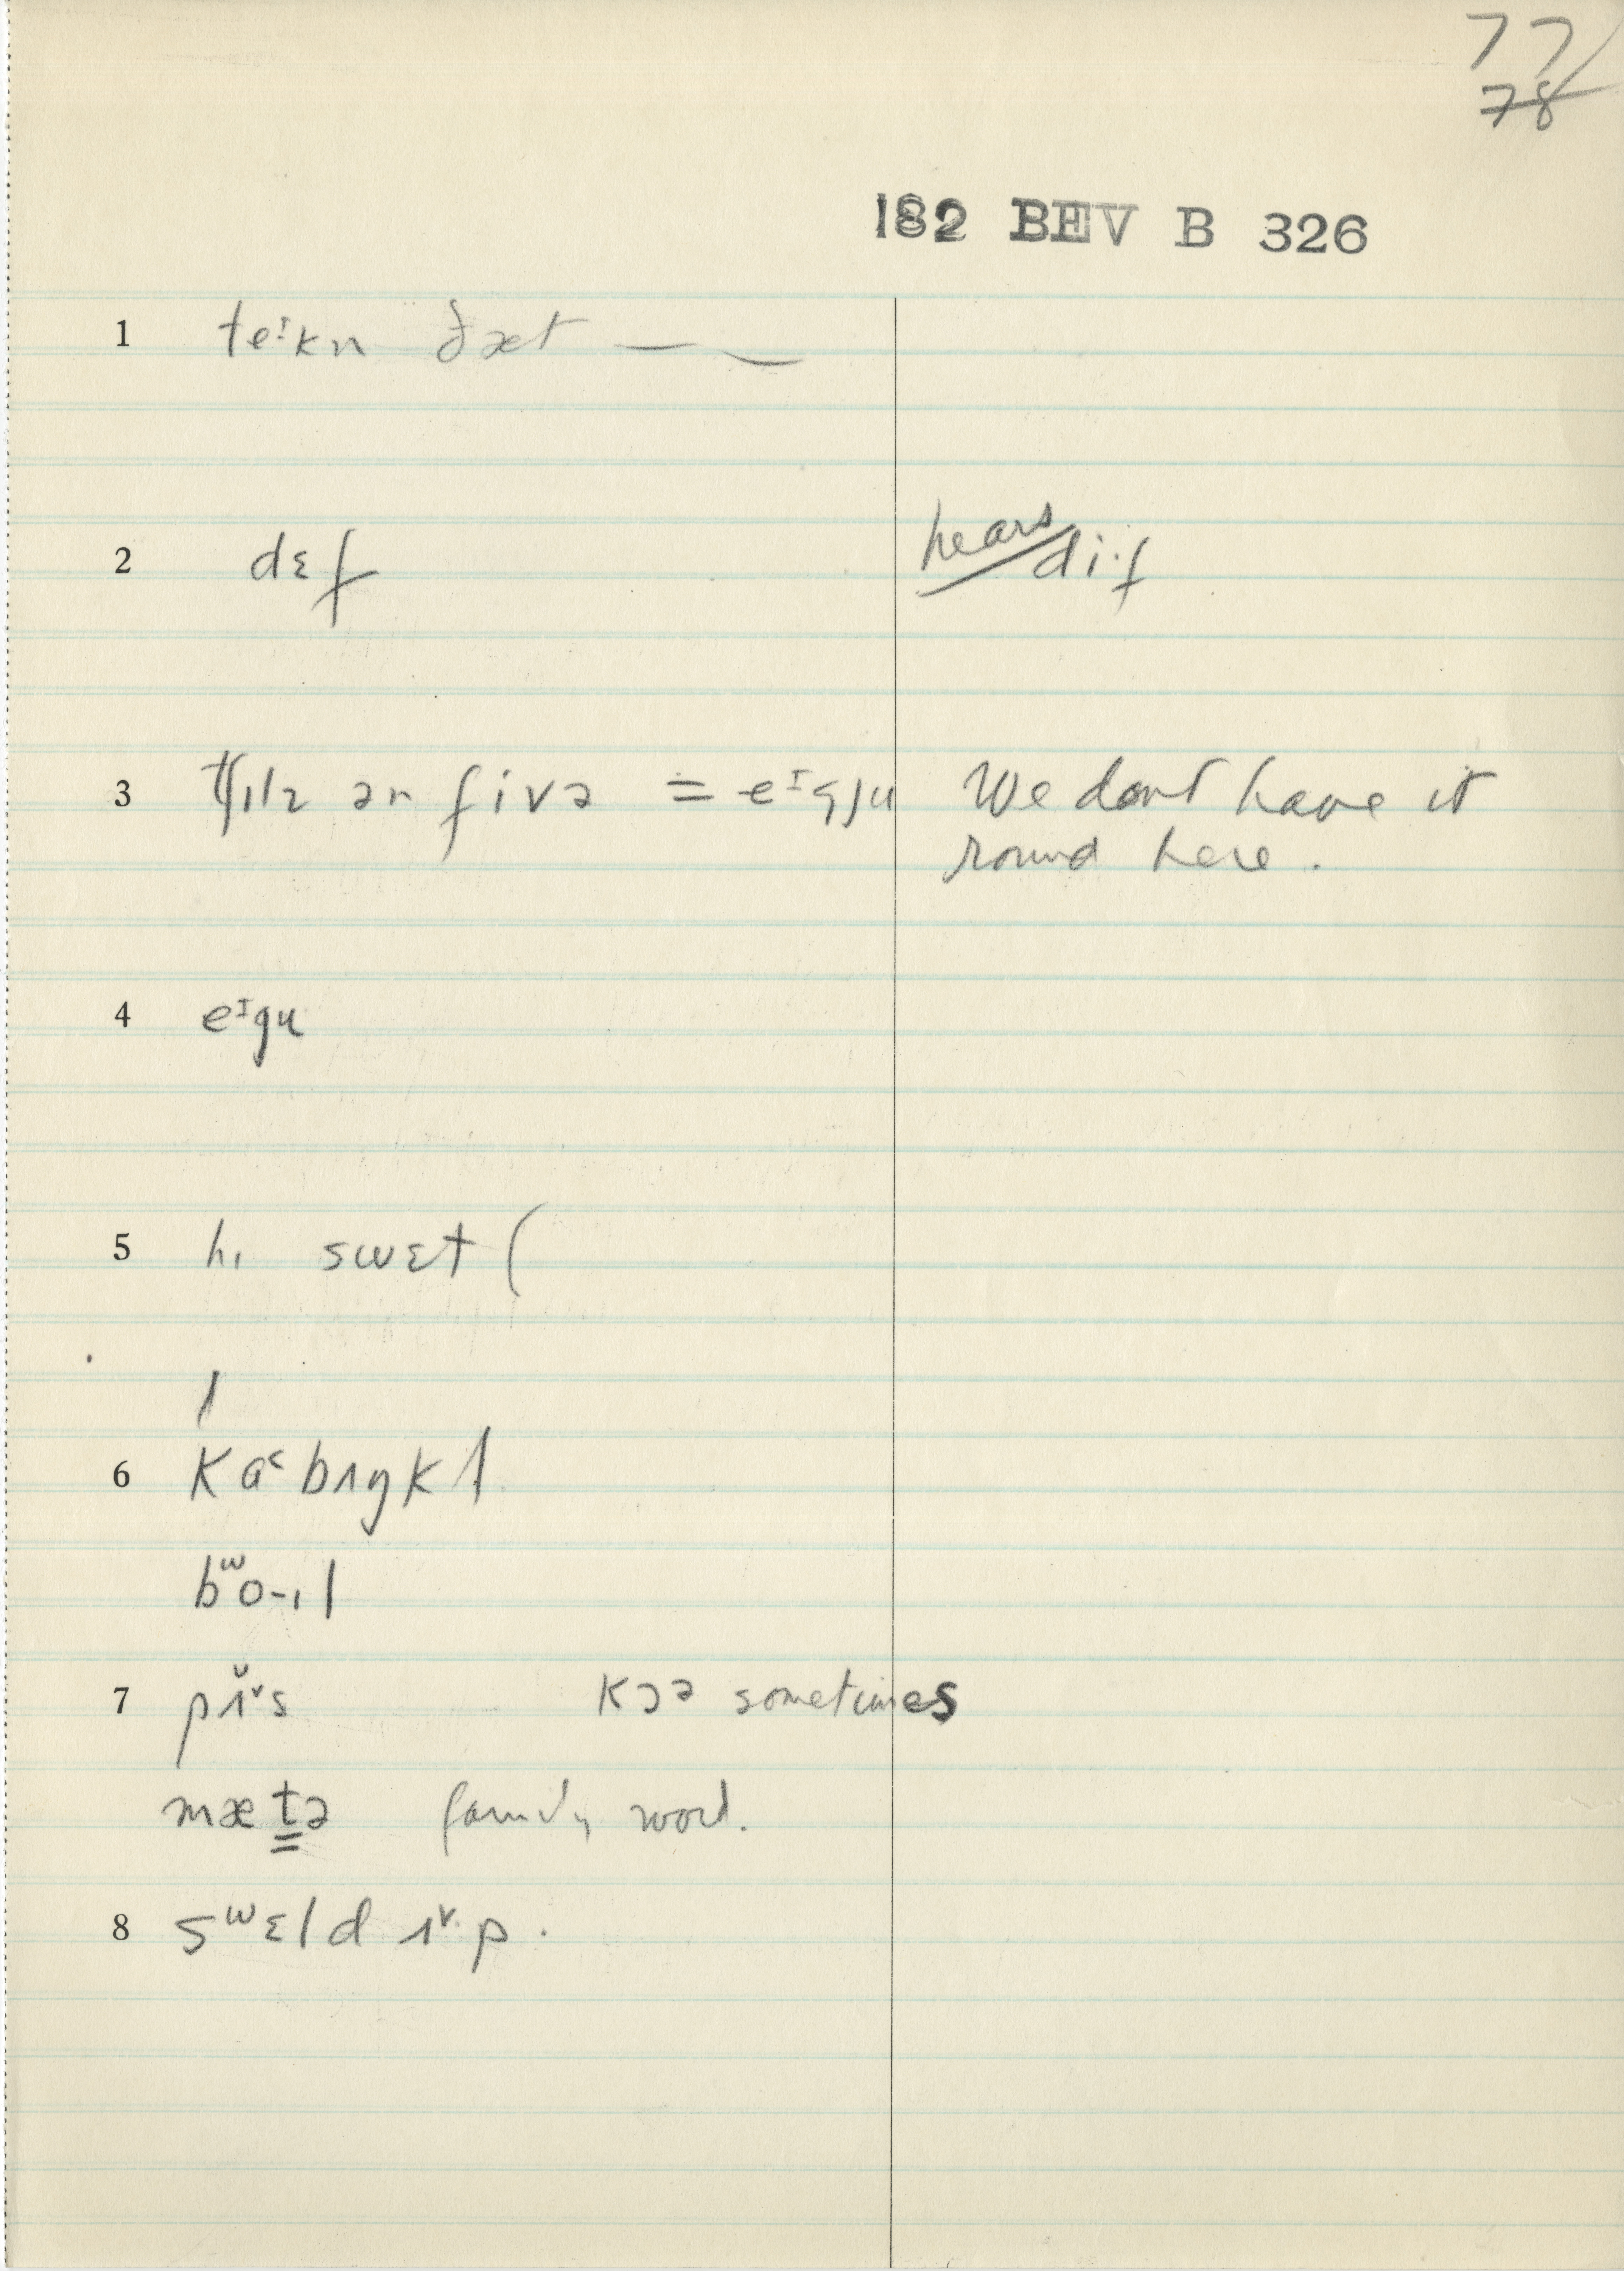 77
78
182 BEV B 326
1 teᴵkn ðæt — ‿
2 dɛf hears di·f
3 tʃɪlz ən fivə = eᴵgju We dont have it
round here.
4 eᴵgu
5 hɪ swɛt (
6 kɑ˂bʌŋkl
bʷo-ɪl
7 pʌ̆ᵛs kɔə sometimes
mæt̳ə family word.
8 sʷɛld ʌᵛp.